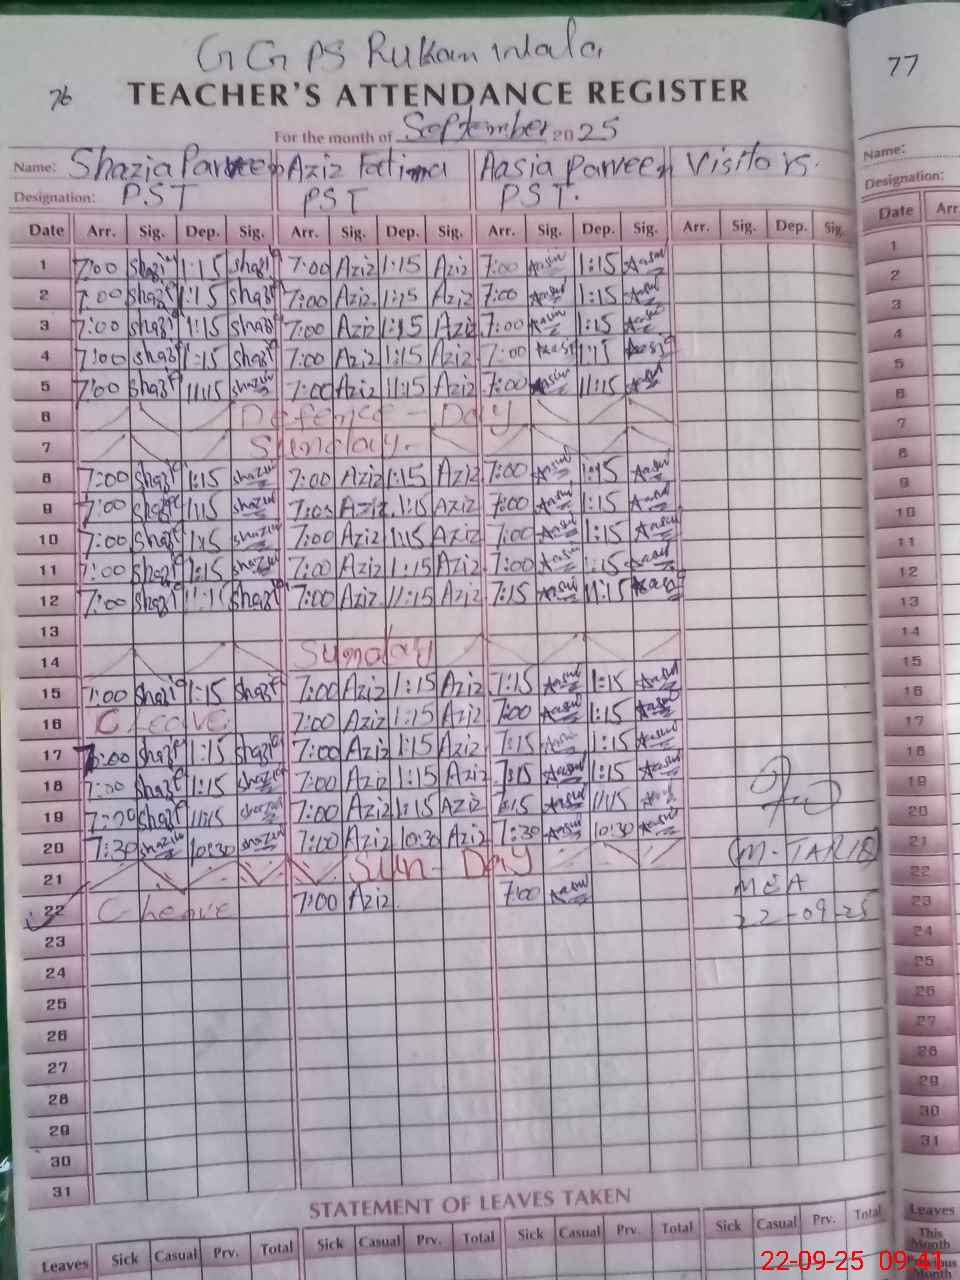 GGPS Rukan wala
76
TEACHER'S ATTENDANCE REGISTER
77
For the month of September 2025
Name: Shazia Parveen Aziz Fatima Aasia Parveen Visitors.
Name:
Designation: PST PST PST.
Designation:
Date Arr. Sig. Dep. Sig. Arr. Sig. Dep. Sig. Arr. Sig. Dep. Sig. Arr. Sig. Dep. Sig.
Date Arr.
1 7:00 1:15 7:00 Aziz 1:15 Aziz 7:00 1:15
2 7:00 1:15 7:00 Aziz 1:15 Aziz 7:00 1:15
3 7:00 1:15 7:00 Aziz 1:15 Aziz 7:00 1:15
4 7:00 1:15 7:00 Aziz 1:15 Aziz 7:00 1:15
5 7:00 11:15 7:00 Aziz 11:15 Aziz 7:00 11:15
6 Defence - Day
7 Sunday.
8 7:00 1:15 7:00 Aziz 1:15 Aziz 7:00 1:15
9 7:00 1:15 7:00 Aziz 1:15 Aziz 7:00 1:15
10 7:00 1:15 7:00 Aziz 1:15 Aziz 7:00 1:15
11 7:00 1:15 7:00 Aziz 1:15 Aziz 7:00 1:15
12 7:00 7:00 Aziz 11:15 Aziz 7:15 11:15
13
14 Sunday
15 7:00 1:15 7:00 Aziz 1:15 Aziz 7:15 1:15
16 C Leave 7:00 Aziz 1:15 Aziz 7:00 1:15
17 7:00 1:15 7:00 Aziz 1:15 Aziz 7:15 1:15
18 7:00 1:15 7:00 Aziz 1:15 Aziz 7:15 1:15
19 7:00 11:15 7:00 Aziz 1:15 Aziz 7:15 11:15
20 7:30 10:30 10:30 Aziz 7:30 10:30
21 Sun - Day
22 C Leave 7:00 Aziz 7:00
23
24
25
26
27
28
29
30
31
M. TARIQ
MEA
22-09-25
1
2
3
4
5
6
7
8
9
10
11
12
13
14
15
16
17
18
19
20
21
22
23
24
25
26
27
28
29
30
31
STATEMENT OF LEAVES TAKEN
Leaves Sick Casual Prv. Total Sick Casual Prv. Total Sick Casual Prv. Total Sick Casual Prv. Total
Leaves
This
Month
Month
22-09-25 09:41